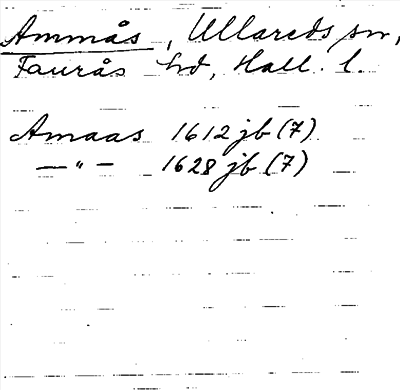 Ammås, Ullareds sn,
Faurås hd, Hall. l.
Amaas 1612 jb (7)
— " — 1628 jb (7)